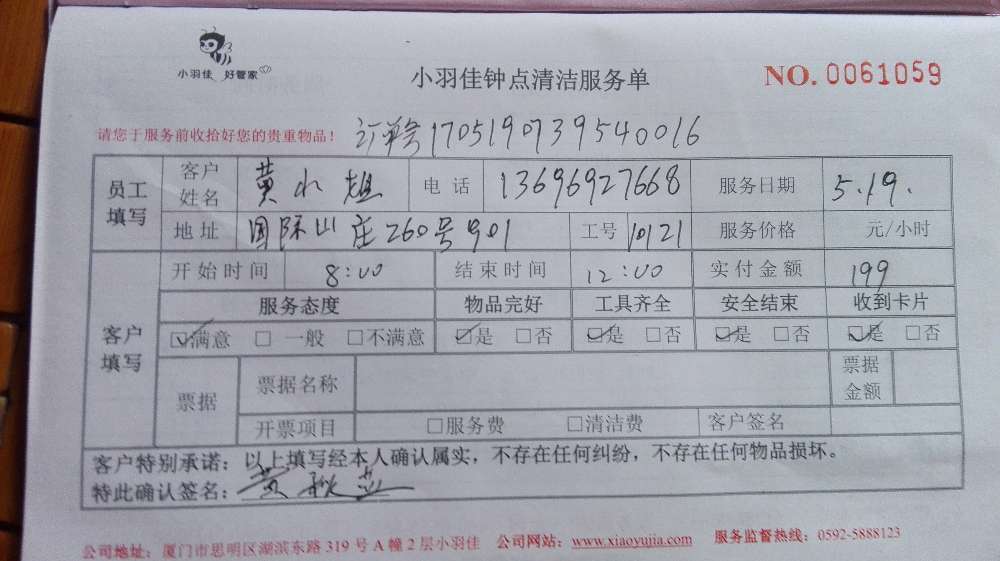 小羽佳 好管家
小羽佳钟点清洁服务单
NO. 0061059
请您于服务前收拾好您的贵重物品！ 订单号170519073954001​6
员工填写 客户姓名 黄 电话 13696927668 服务日期 5.19.
地址 国际山庄260号901 工号 10121 服务价格 元/小时
客户填写 开始时间 8:00 结束时间 12:00 实付金额 199
服务态度 物品完好 工具齐全 安全结束 收到卡片
☑满意 □一般 □不满意 ☑是 □否 ☑是 □否 ☑是 □否 ☑是 □否
票据 票据名称 票据金额
开票项目 □服务费 □清洁费 客户签名
客户特别承诺：以上填写经本人确认属实，不存在任何纠纷，不存在任何物品损坏。
特此确认签名：黄
公司地址：厦门市思明区湖滨东路319号A幢2层小羽佳 公司网站：www.xiaoyujia.com 服务监督热线：0592-5888123